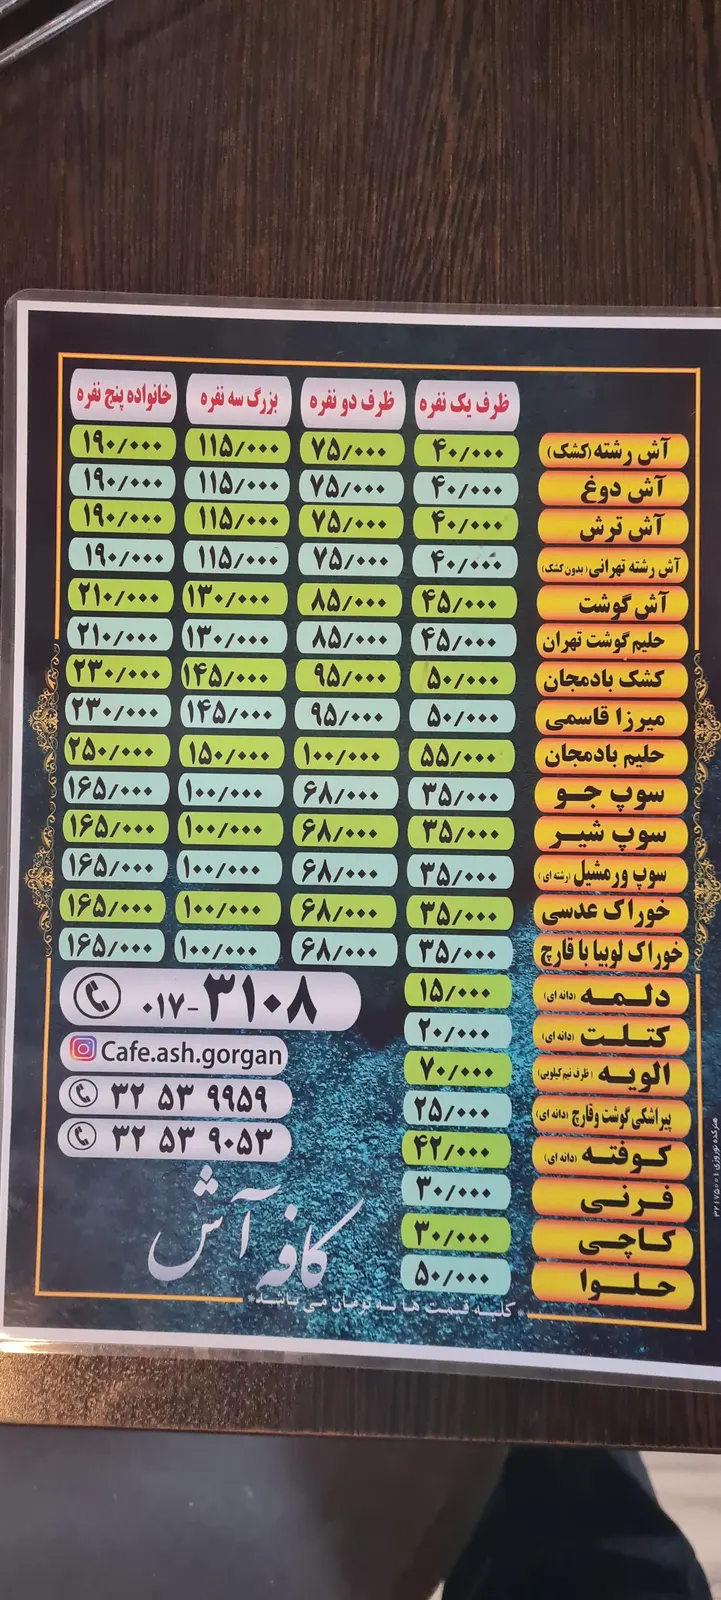 ظرف یک نفره ظرف دو نفره بزرگ سه نفره خانواده پنج نفره
آش رشته (کشک) ۴۰/۰۰۰ ۷۵/۰۰۰ ۱۱۵/۰۰۰ ۱۹۰/۰۰۰
آش دوغ ۴۰/۰۰۰ ۷۵/۰۰۰ ۱۱۵/۰۰۰ ۱۹۰/۰۰۰
آش ترش ۴۰/۰۰۰ ۷۵/۰۰۰ ۱۱۵/۰۰۰ ۱۹۰/۰۰۰
آش رشته تهرانی (بدون کشک) ۴۰/۰۰۰ ۷۵/۰۰۰ ۱۱۵/۰۰۰ ۱۹۰/۰۰۰
آش گوشت ۴۵/۰۰۰ ۸۵/۰۰۰ ۱۳۰/۰۰۰ ۲۱۰/۰۰۰
حلیم گوشت تهران ۴۵/۰۰۰ ۸۵/۰۰۰ ۱۳۰/۰۰۰ ۲۱۰/۰۰۰
کشک بادمجان ۵۰/۰۰۰ ۹۵/۰۰۰ ۱۴۵/۰۰۰ ۲۳۰/۰۰۰
میرزا قاسمی ۵۰/۰۰۰ ۹۵/۰۰۰ ۱۴۵/۰۰۰ ۲۳۰/۰۰۰
حلیم بادمجان ۵۵/۰۰۰ ۱۰۰/۰۰۰ ۱۵۰/۰۰۰ ۲۵۰/۰۰۰
سوپ جـو ۳۵/۰۰۰ ۶۸/۰۰۰ ۱۰۰/۰۰۰ ۱۶۵/۰۰۰
سوپ شیـر ۳۵/۰۰۰ ۶۸/۰۰۰ ۱۰۰/۰۰۰ ۱۶۵/۰۰۰
سوپ ورمشیل (رشته ای) ۳۵/۰۰۰ ۶۸/۰۰۰ ۱۰۰/۰۰۰ ۱۶۵/۰۰۰
خوراک عدسی ۳۵/۰۰۰ ۶۸/۰۰۰ ۱۰۰/۰۰۰ ۱۶۵/۰۰۰
خوراک لوبیا با قارچ ۳۵/۰۰۰ ۶۸/۰۰۰ ۱۰۰/۰۰۰ ۱۶۵/۰۰۰
دلـمـه (دانه ای) ۱۵/۰۰۰
کتـلـت (دانه ای) ۲۰/۰۰۰
الویـه (ظرف نیم کیلویی) ۷۰/۰۰۰
پیراشکی گوشت و قارچ (دانه ای) ۲۵/۰۰۰
کـوفته (دانه ای) ۴۲/۰۰۰
فـرنـی ۳۰/۰۰۰
کـاچـی ۳۰/۰۰۰
حـلـوا ۵۰/۰۰۰
۰۱۷-۳۱۰۸
Cafe.ash.gorgan
۳۲ ۵۳ ۹۹۵۹
۳۲ ۵۳ ۹۰۵۳
کافه آش
*کلیه قیمت ها به تومان می باشد*